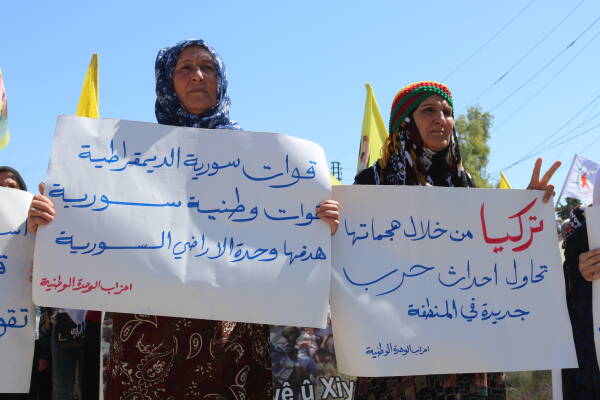 قوات سورية الديمقراطية
قوات وطنية سورية
هدفها وحدة الاراضي السورية
احزاب الوحدة الوطنية
تركيا من خلال هجماتها
تحاول احداث حرب
جديدة في المنطقة
احزاب الوحدة الوطنية
ê û Xiy